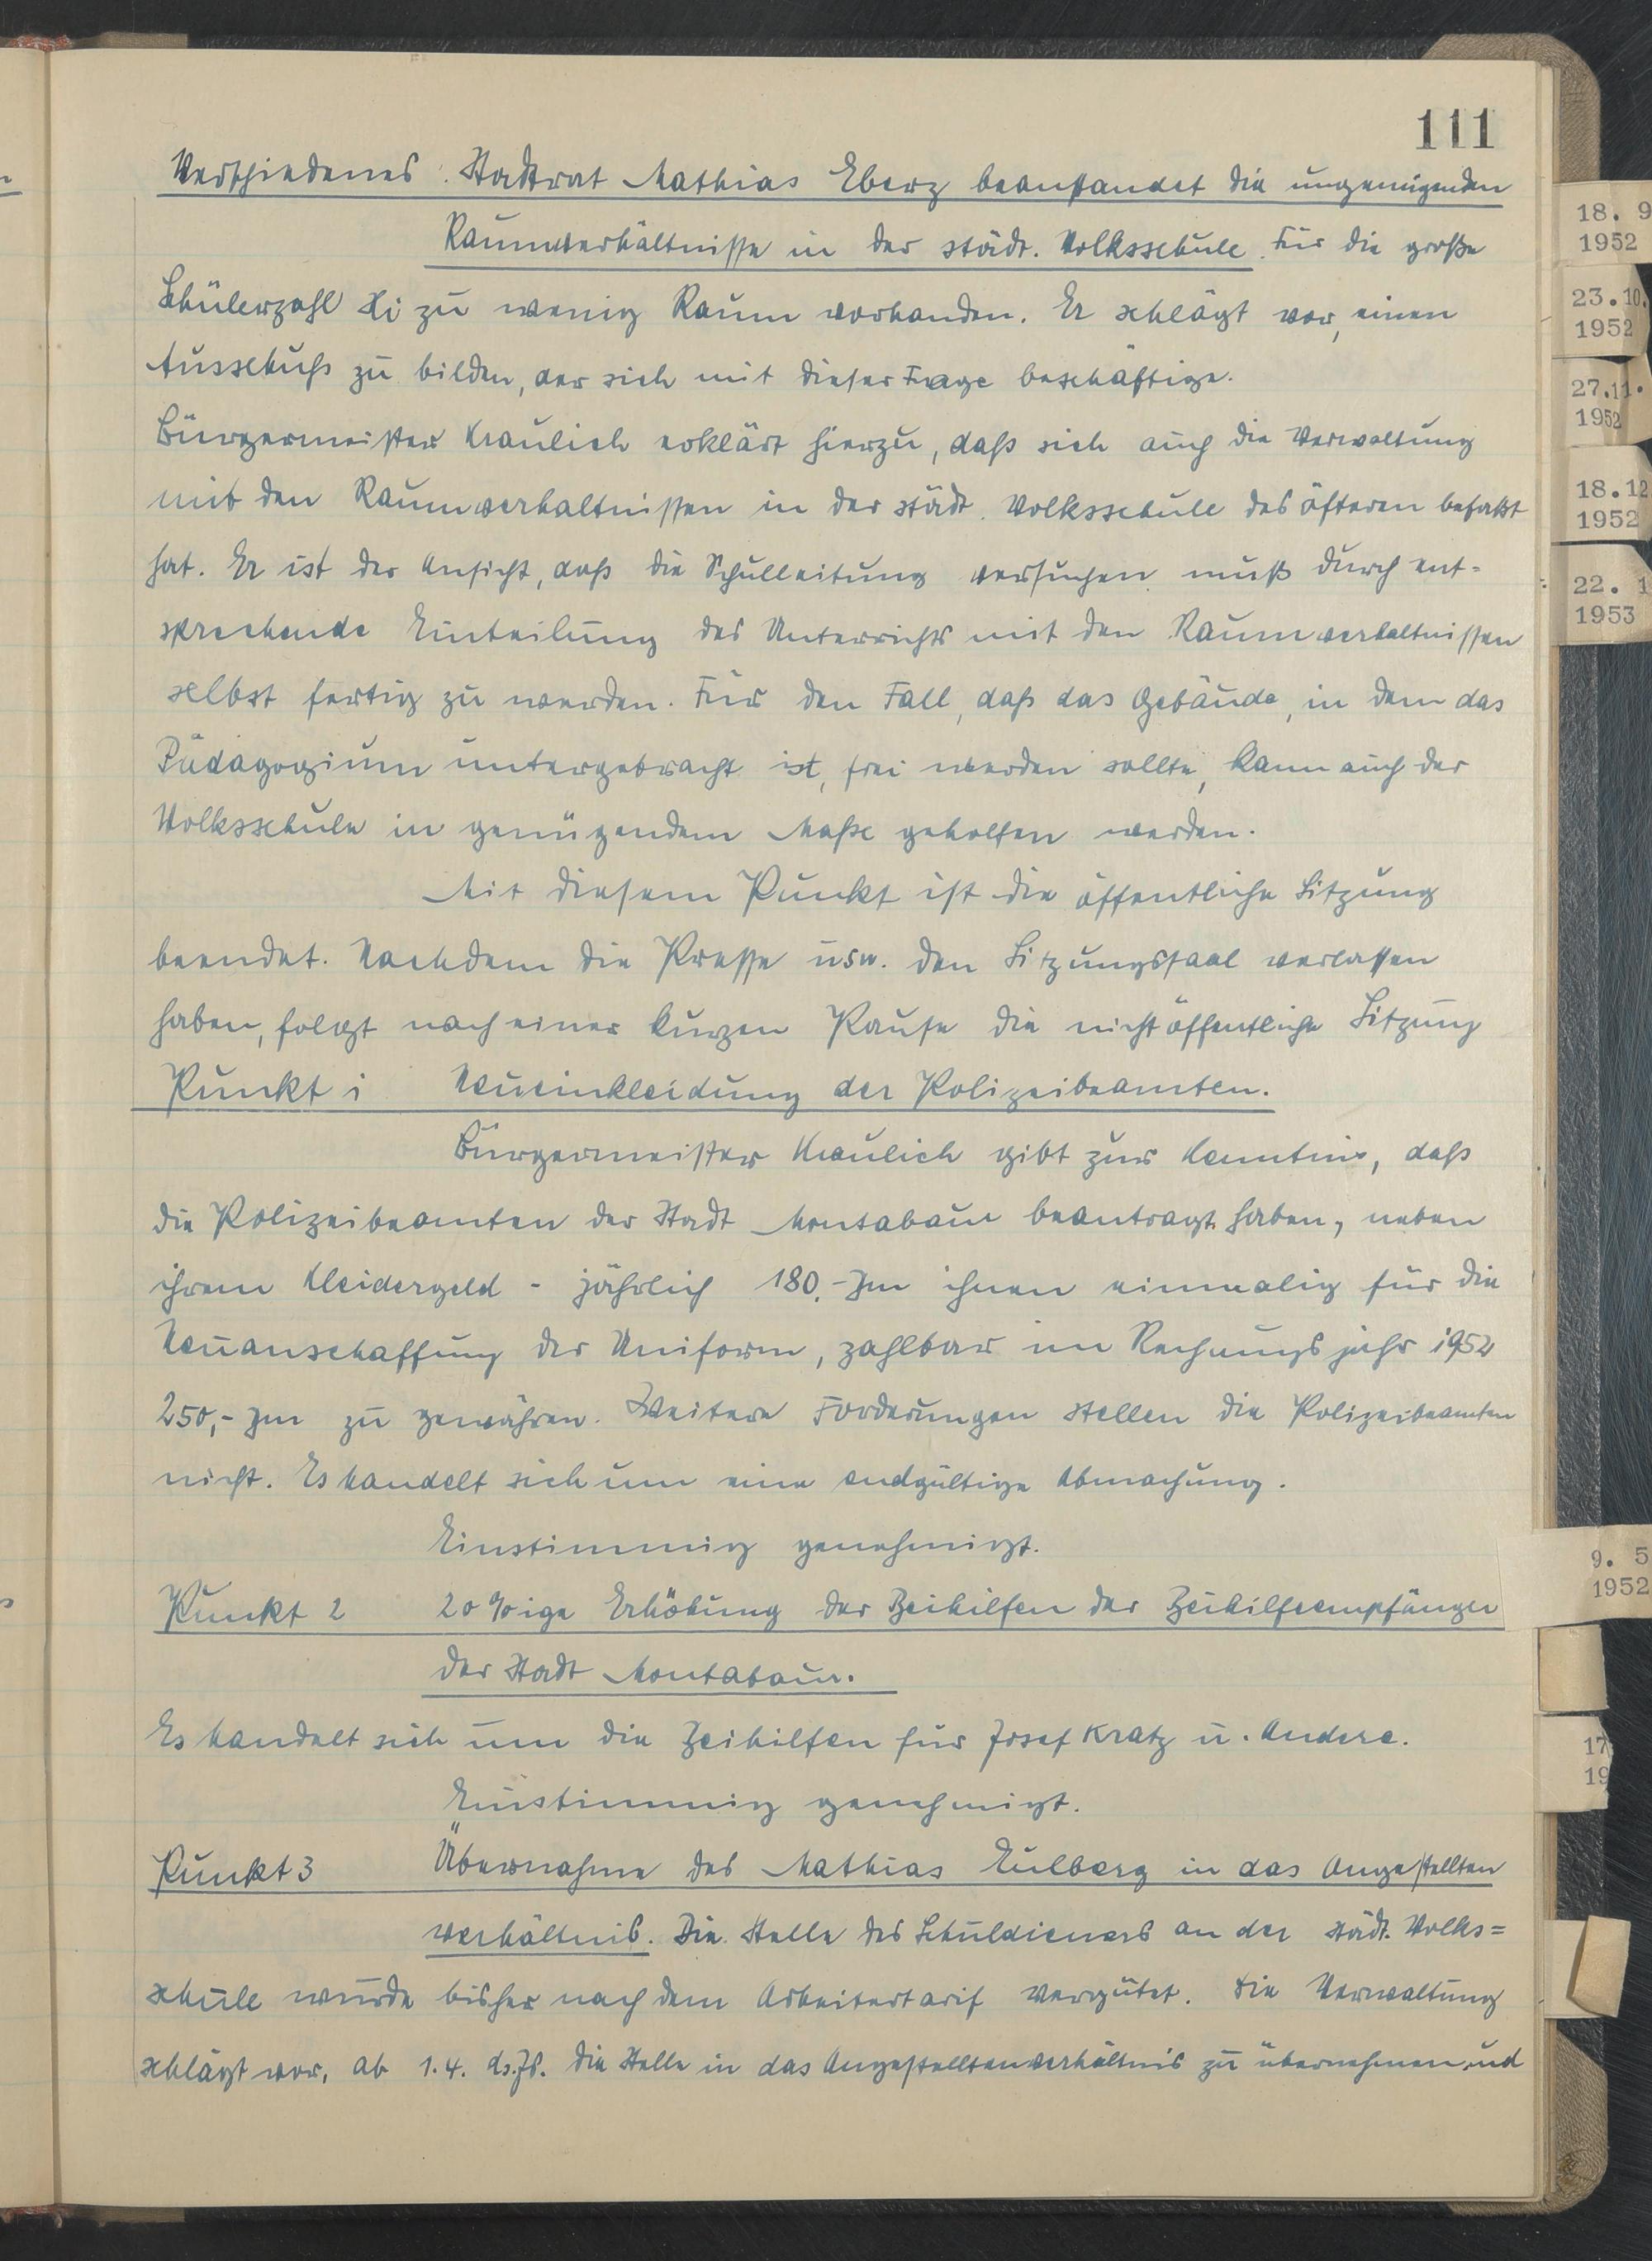 111
Verschiedenes: Stadtrat Mathias Eberz beanstandet die ungenügenden
Raumverhältnisse in der städt. Volksschule. Für die große
Schülerzahl sei zu wenig Raum vorhanden. Er schlägt vor, einen
Ausschuß zu bilden, der sich mit dieser Frage beschäftige.
Bürgermeister Kraulich erklärt hierzu, daß sich auch die Verwaltung
mit den Raumverhältnissen in der städt. Volksschule des öfteren befaßt
hat. Er ist der Ansicht, daß die Schulleitung versuchen muß durch ent-
sprechende Einteilung des Unterrichts mit den Raumverhältnissen
selbst fertig zu werden. Für den Fall, daß das Gebäude, in dem das
Pädagogium untergebracht ist, frei werden sollte, kann auch der
Volksschule in genügendem Maße geholfen werden.
Mit diesem Punkt ist die öffentliche Sitzung
beendet. Nachdem die Presse usw. den Sitzungssaal verlassen
haben, folgt nach einer kurzen Pause die nichtöffentliche Sitzung
Punkt 1 Neueinkleidung der Polizeibeamten.
Bürgermeister Kraulich gibt zur Kenntnis, daß
die Polizeibeamten der Stadt Montabaur beantragt haben, neben
ihrem Kleidergeld - jährlich 180,- DM ihnen einmalig für die
Neuanschaffung der Uniform, zahlbar im Rechnungsjahr 1952
250,- DM zu gewähren. Weitere Forderungen stellen die Polizeibeamten
nicht. Es handelt sich um eine endgültige Abmachung.
Einstimmig genehmigt.
Punkt 2 20%ige Erhöhung der Beihilfen der Beihilfeempfänger
der Stadt Montabaur.
Es handelt sich um die Beihilfen für Josef Kratz u. Andere.
Einstimmig genehmigt.
Punkt 3 Übernahme des Mathias Eulberg in das Angestellten
verhältnis. Die Stelle des Schuldieners an der städt. Volks=
schule wurde bisher nach dem Arbeitertarif vergütet. Die Verwaltung
schlägt vor, ab 1.4. ds.Js. die Stelle in das Angestelltenverhältnis zu übernehmen und
18. 9
1952
23.10.
1952
27.11.
1952
18.12
1952
22. 1
1953
9. 5
1952
17
19